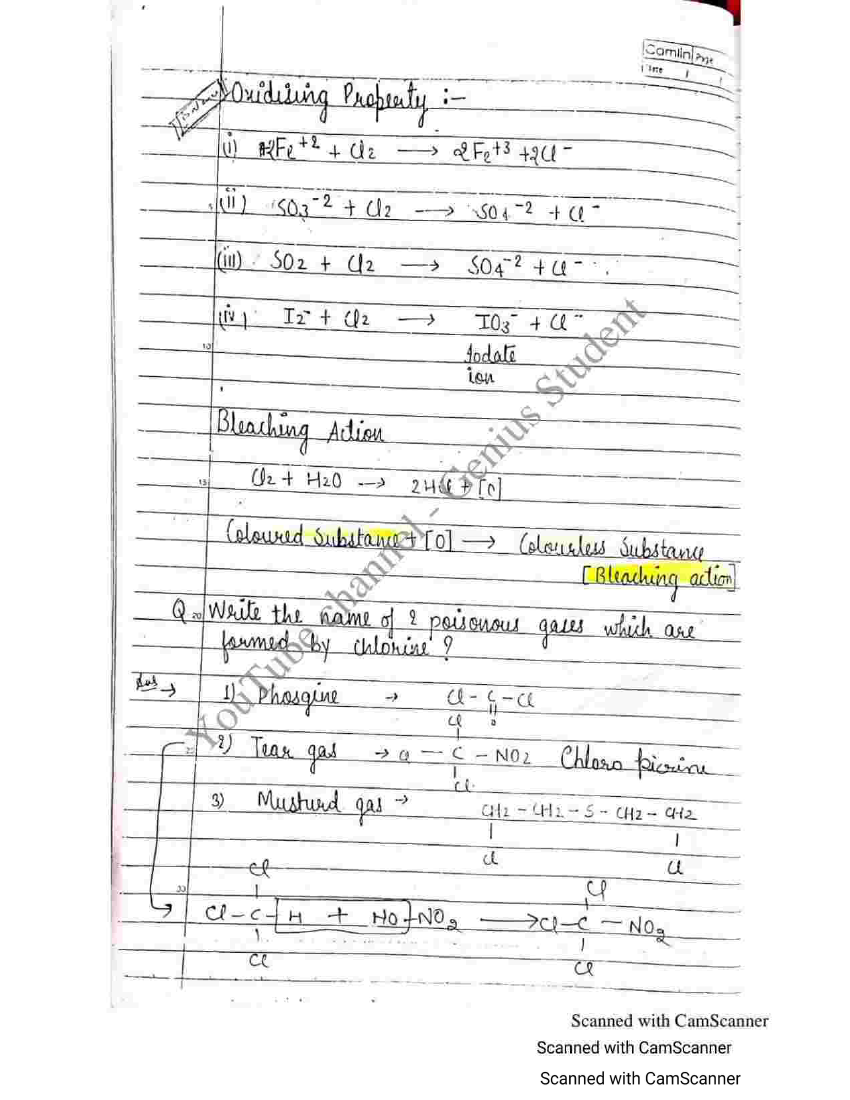 Camlin Page
Date / /
Oxidising Property :-
(i) 2Fe+2 + Cl2 → 2Fe+3 + 2Cl-
(ii) SO3-2 + Cl2 → SO4-2 + Cl-
(iii) SO2 + Cl2 → SO4-2 + Cl-
(iv) I2- + Cl2 → IO3- + Cl-
10
Iodate
ion
Bleaching Action
15
Cl2 + H2O → 2HCl + [O]
Coloured Substance + [O] → Colourless Substance
[Bleaching action]
Q 20 Write the name of 2 poisonous gases which are
formed by chlorine ?
Ans →
1) Phosgine → Cl - C - Cl
Cl O
2) Tear gas → Cl - C - NO2 Chloro picrine
25 Cl
3) Musturd gas → CH2 - CH2 - S - CH2 - CH2
Cl Cl
Cl Cl
Cl - C - H + HO - NO2 → Cl - C - NO2
Cl Cl
YouTube channel - Genius Student
Scanned with CamScanner
Scanned with CamScanner
Scanned with CamScanner